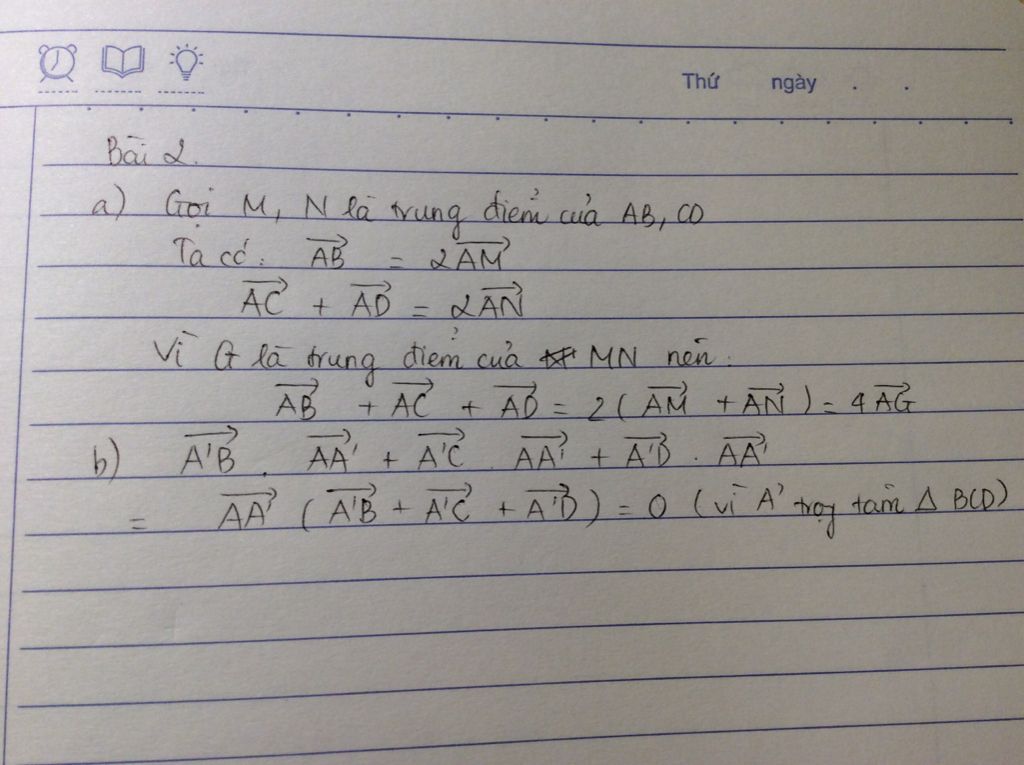 Thứ ngày . .
Bài 2.
a) Gọi M, N là trung điểm của AB, CD
Ta có: $\overrightarrow{AB} = 2\overrightarrow{AM}$
$\overrightarrow{AC} + \overrightarrow{AD} = 2\overrightarrow{AN}$
Vì G là trung điểm của MN nên:
$\overrightarrow{AB} + \overrightarrow{AC} + \overrightarrow{AD} = 2(\overrightarrow{AM} + \overrightarrow{AN}) = 4\overrightarrow{AG}$
b) $\overrightarrow{A'B} . \overrightarrow{AA'} + \overrightarrow{A'C} . \overrightarrow{AA'} + \overrightarrow{A'D} . \overrightarrow{AA'}$
$= \overrightarrow{AA'} (\overrightarrow{A'B} + \overrightarrow{A'C} + \overrightarrow{A'D}) = 0$ (vì A' trọg tâm Δ BCD)